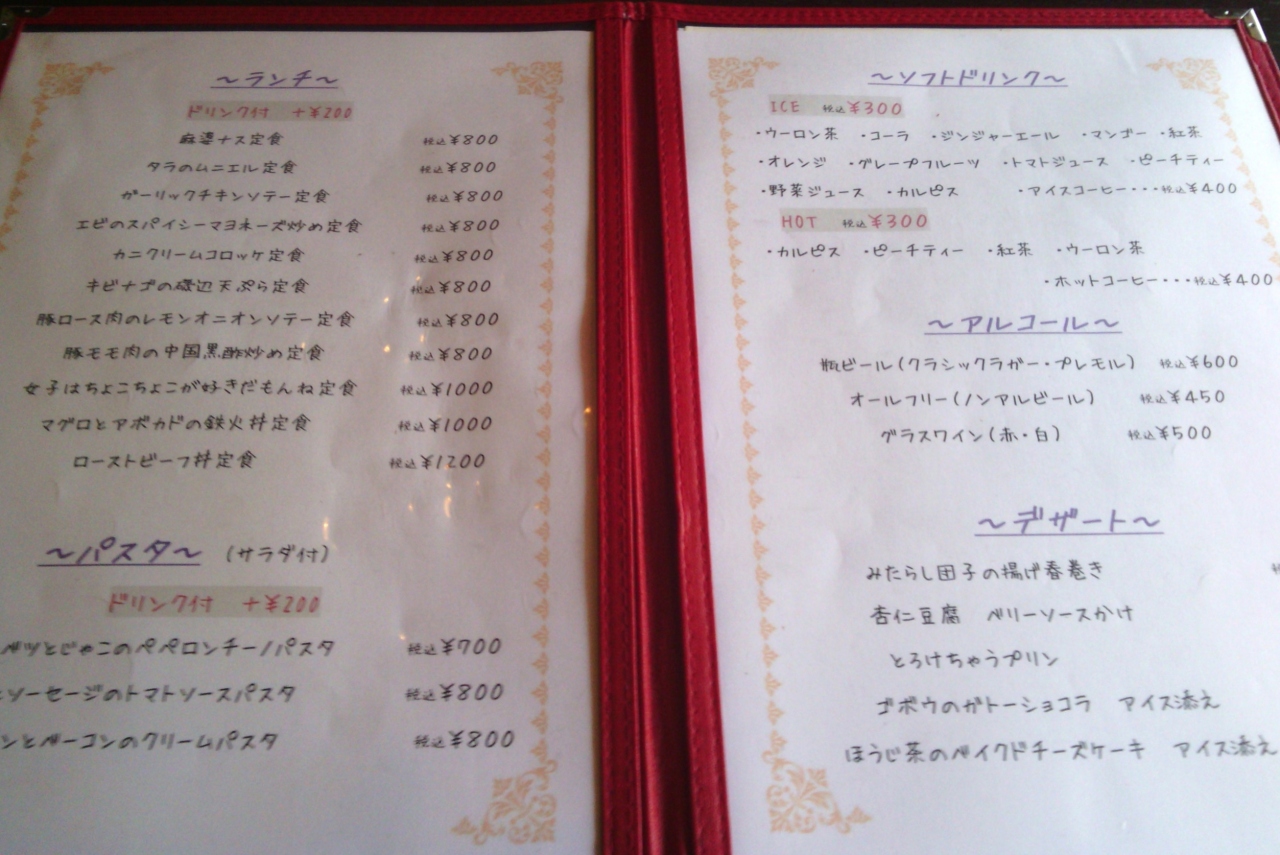 ～ランチ～
ドリンク付 +¥200
麻婆ナス定食 税込¥800
タラのムニエル定食 税込¥800
ガーリックチキンソテー定食 税込¥800
エビのスパイシーマヨネーズ炒め定食 税込¥800
カニクリームコロッケ定食 税込¥800
キビナゴの磯辺天ぷら定食 税込¥800
豚ロース肉のレモンオニオンソテー定食 税込¥800
豚モモ肉の中国黒酢炒め定食 税込¥800
女子はちょこちょこが好きだもんね定食 税込¥1000
マグロとアボカドの鉄火丼定食 税込¥1000
ローストビーフ丼定食 税込¥1200
～パスタ～ (サラダ付)
ドリンク付 +¥200
ベツとじゃこのペペロンチーノパスタ 税込¥700
とソーセージのトマトソースパスタ 税込¥800
ンとベーコンのクリームパスタ 税込¥800
～ソフトドリンク～
ICE 税込¥300
・ウーロン茶 ・コーラ ・ジンジャーエール ・マンゴー ・紅茶
・オレンジ ・グレープフルーツ ・トマトジュース ・ピーチティー
・野菜ジュース ・カルピス ・アイスコーヒー・・・税込¥400
HOT 税込¥300
・カルピス ・ピーチティー ・紅茶 ・ウーロン茶
・ホットコーヒー・・・税込¥400
～アルコール～
瓶ビール(クラシックラガー・プレモル) 税込¥600
オールフリー(ノンアルビール) 税込¥450
グラスワイン(赤・白) 税込¥500
～デザート～
みたらし団子の揚げ春巻き
杏仁豆腐 ベリーソースかけ
とろけちゃうプリン
ゴボウのガトーショコラ アイス添え
ほうじ茶のベイクドチーズケーキ アイス添え